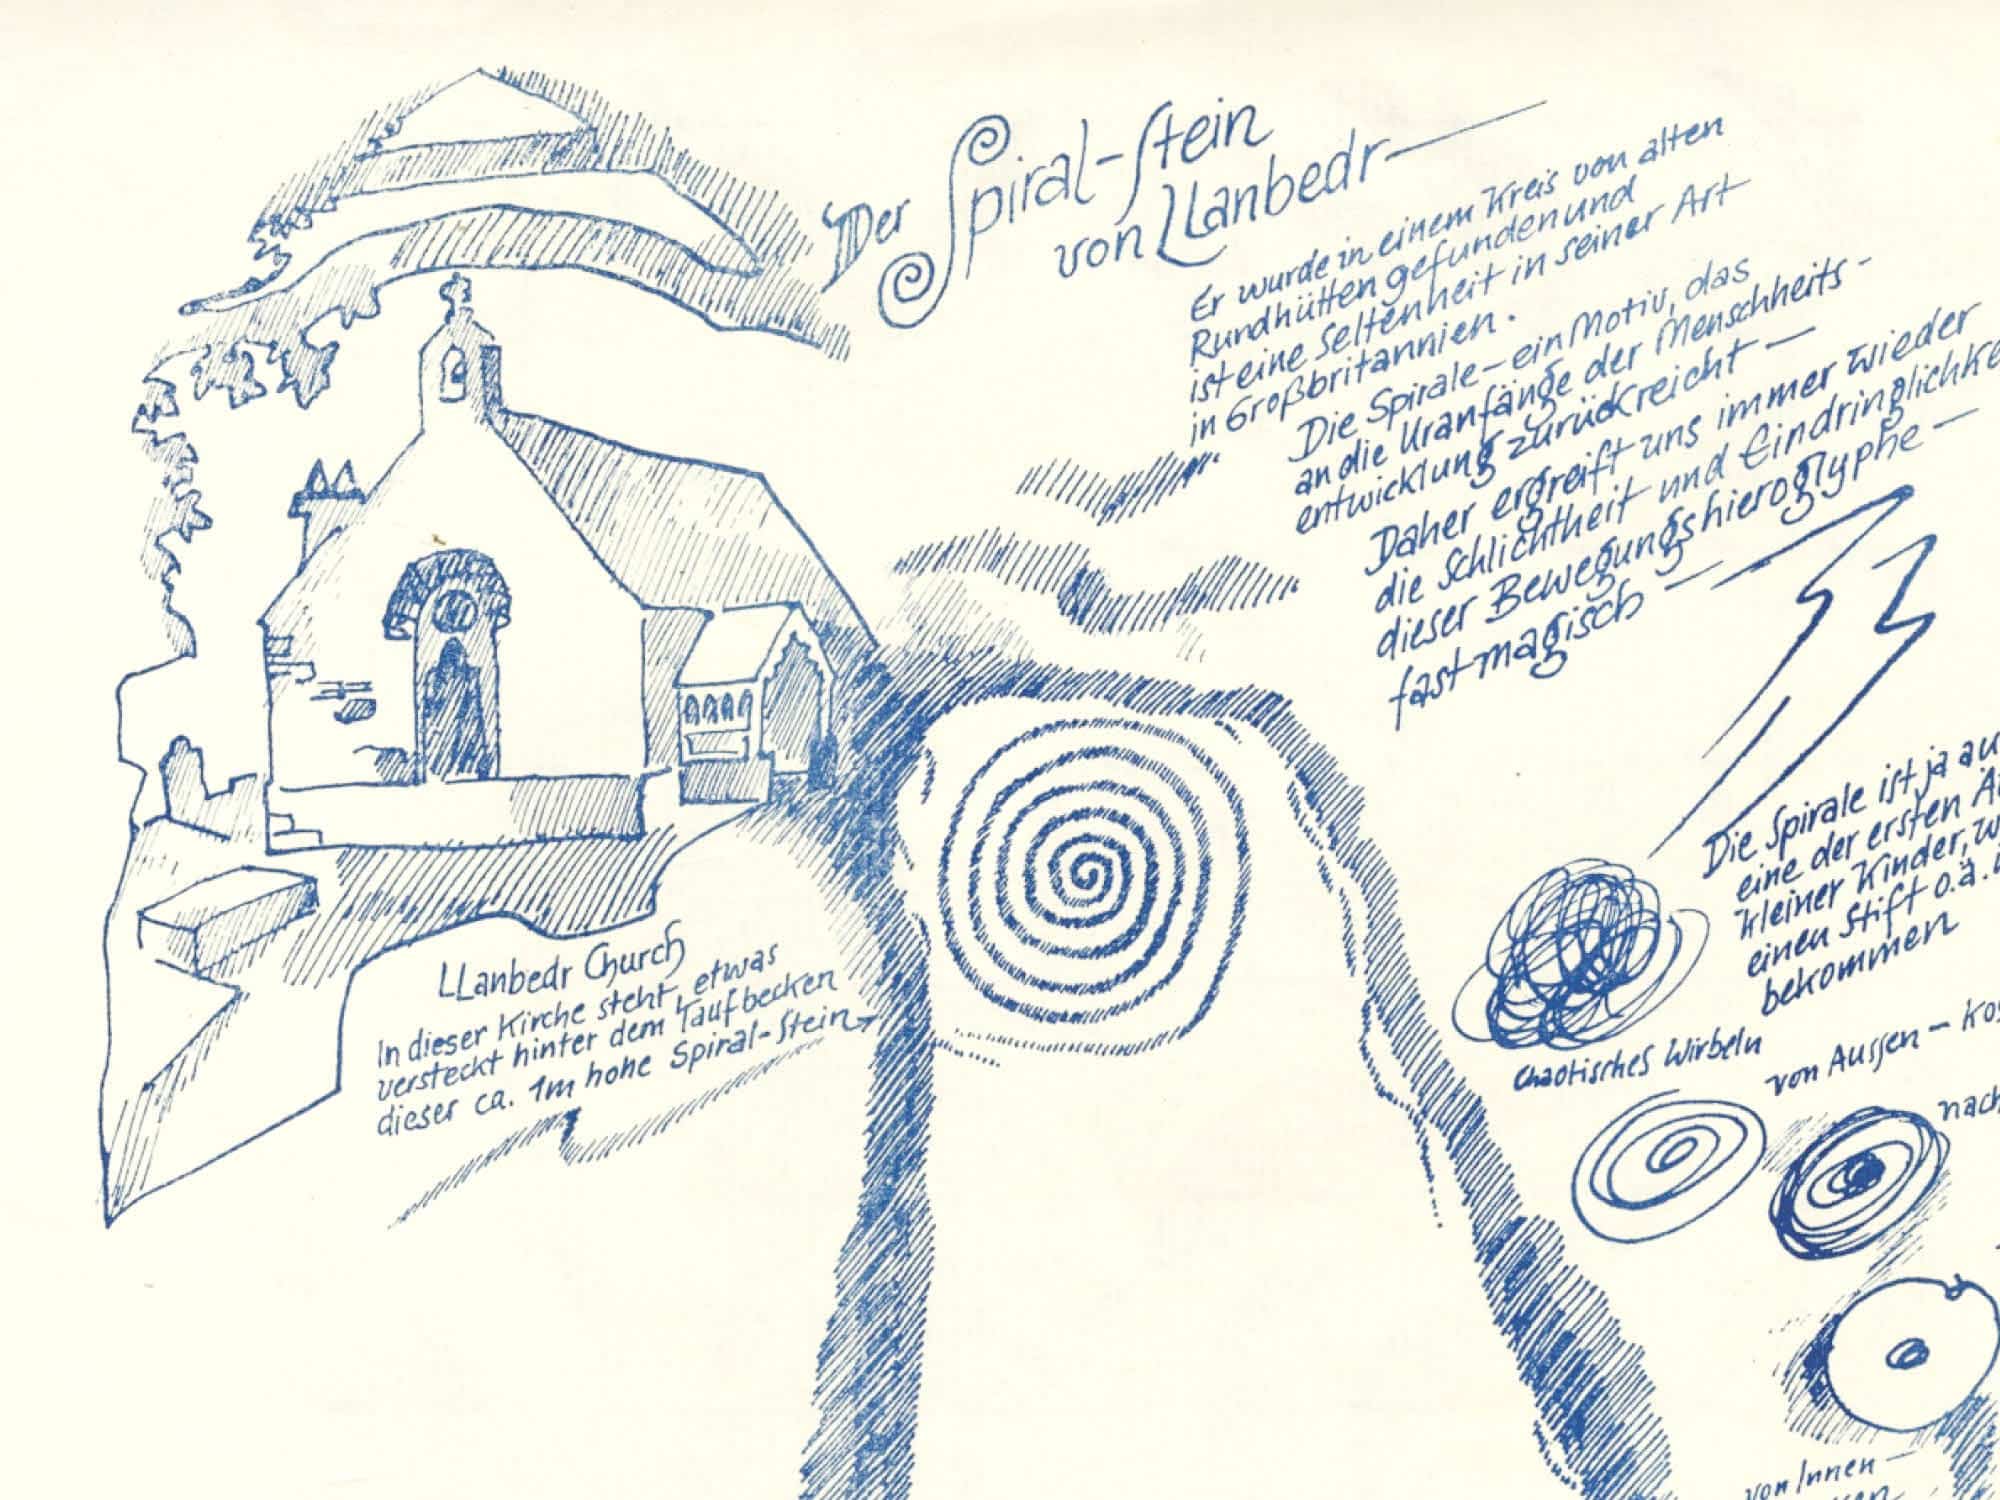 Der Spiral-Stein
von LLanbedr—
Er wurde in einem Kreis von alten
Rundhütten gefunden und
ist eine Seltenheit in seiner Art
in Großbritannien.
Die Spirale – ein Motiv, das
an die Uranfänge der Menschheits-
entwicklung zurückreicht –
Daher ergreift uns immer wieder
die Schlichtheit und
dieser Bewegungshieroglyphe –
fast magisch –
LLanbedr Church
In dieser Kirche steht, etwas
versteckt hinter dem Taufbecken
dieser ca. 1m hohe Spiral-Stein
Die Spirale ist ja
eine der ersten
kleiner Kinder,
einen Stift o.ä.
bekommen
chaotisches Wirbeln
von Aussen –
nach
von Innen –